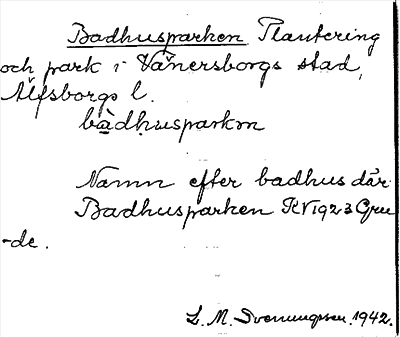 Badhusparken Plantering
och park i Vänersborgs stad,
Älfsborgs l.
bàdhusparkɷn
Namn efter badhus där.
Badhusparken KV 1923 Gru
-de.
L. M. Svenungsson. 1942.